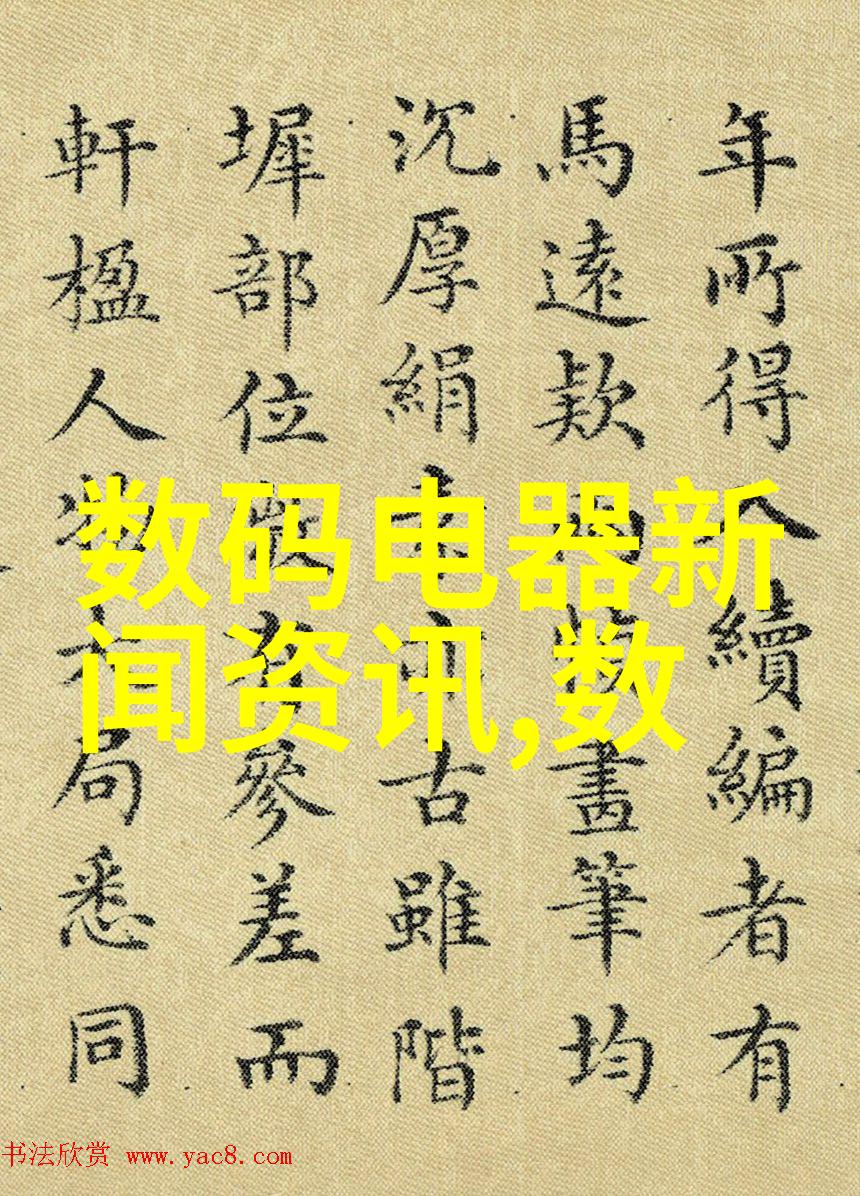 年所得續編者有
馬遠款畫筆均
沉厚絹素古雖階
墀部位有參差而
軒楹人物局悉同
数码电器新
闻资讯,数
书法欣赏 www.yac8.com